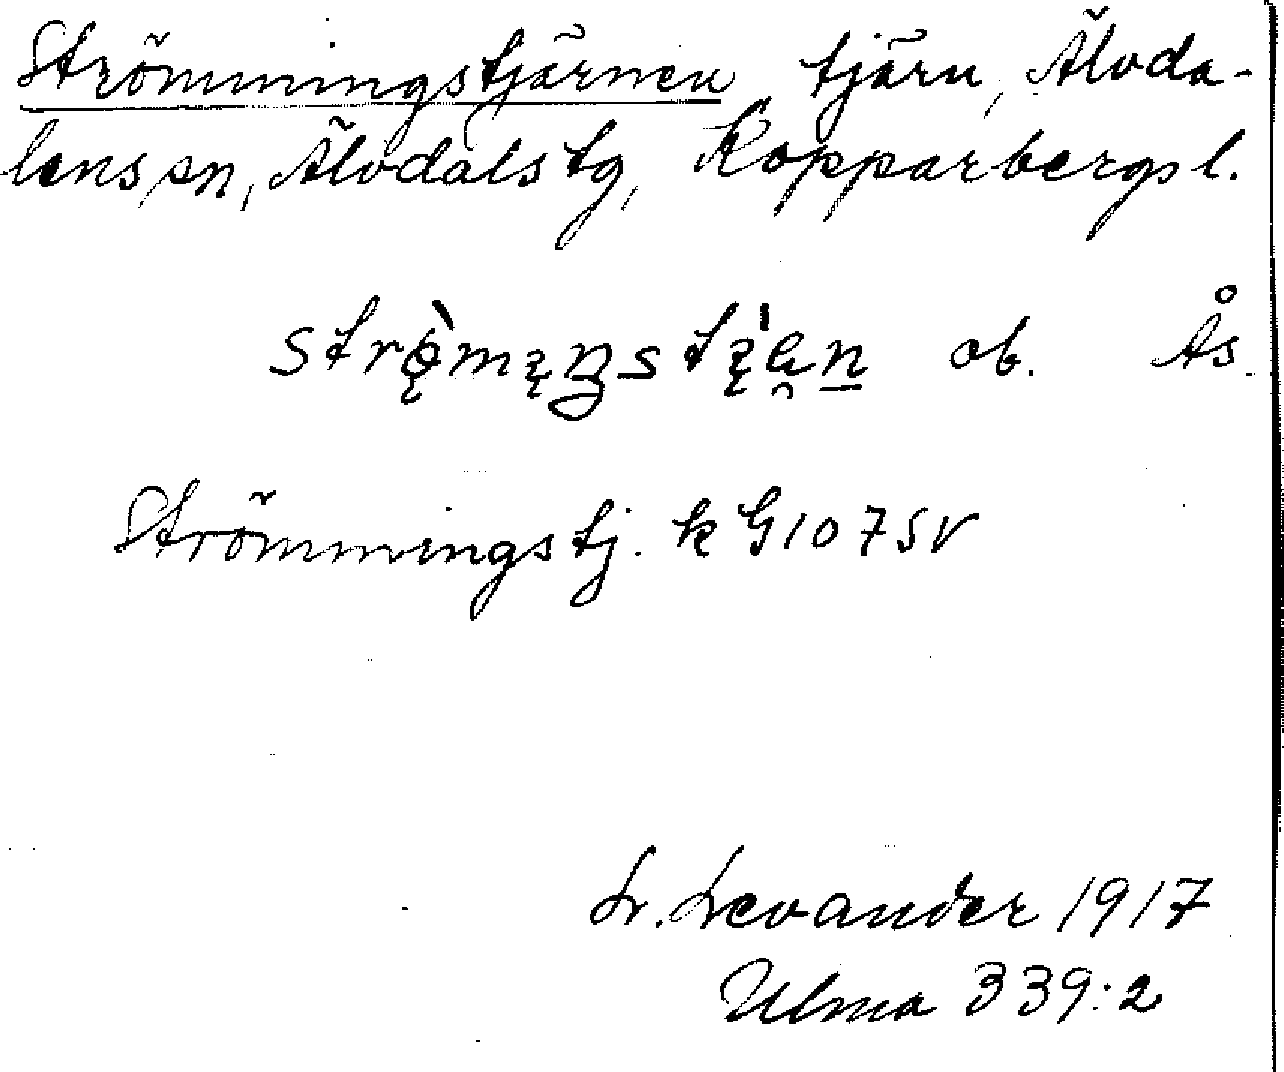 Strömmingstjärnen tjärn, Älvda-
lens sn, Älvdals tg, Kopparbergs l.
ob. Ås.
Strömmingstj. k G107SV
L. Levander 1917
Ulma 339:2